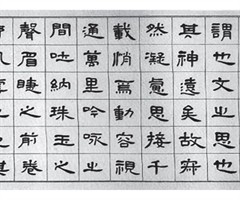 謂也文之思也
其神遠矣故寂
然凝慮思接千
載悄焉動容視
通萬里吟詠之
間吐納珠玉之
聲眉睫之前卷